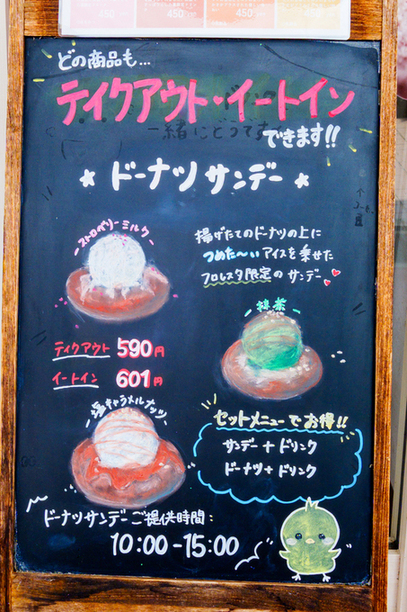 450
450
450
どの商品も...
テイクアウト・イートイン
一緒にどうです
できます!!
★ ドーナツサンデー ★
ストロベリーミルク
揚げたてのドーナツの上に
つめた〜いアイスを乗せた
フロレスタ限定のサンデー
抹茶
テイクアウト 590円
イートイン 601円
塩キャラメルナッツ
セットメニューでお得!!
サンデー + ドリンク
ドーナツ + ドリンク
ドーナツサンデーご提供時間:
10:00-15:00